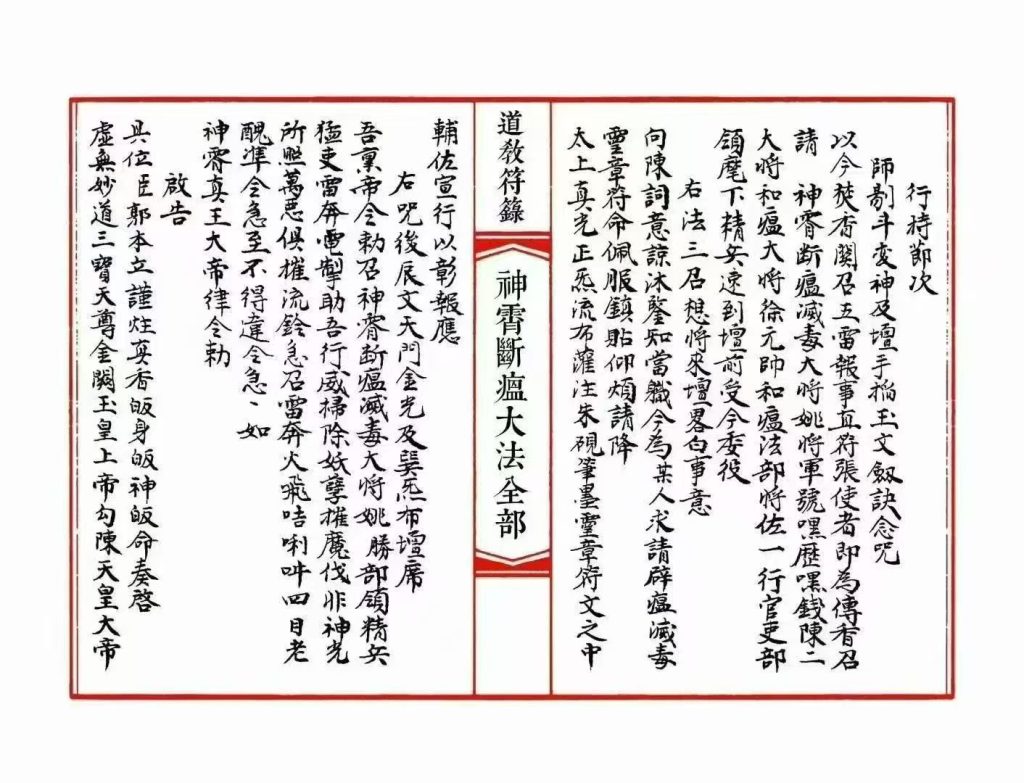 行持節次
師剔斗變神及壇手掐玉文劔訣念咒
以今焚香關召五雷報事直符張使者即為傳香召
請 神霄断瘟滅毒大將姚將軍號嘿歷嘿錢陳二
大將和瘟大將徐元帥和瘟法部將佐一行官吏部
領麾下精兵速到壇前受今委役
右法三召想將來壇畧白事意
向陳詞意諒沐鑒知當職今為某人求請辟瘟滅毒
靈章符命佩服鎮貼仰煩請降
太上真光正炁流布灌注朱硯筆墨靈章符文之中
道教符籙
神霄斷瘟大法全部
輔佐宣行以彰報應
右咒後辰文天門金光及巽炁布壇席
吾禀帝令勅召神霄断瘟滅毒大將姚 勝部領精兵
猛吏雷奔電掣助吾行威掃除妖孽摧魔伐非神光
所照萬惡俱摧流鈴急召雷奔火飛咭唎吽四目老
醜準令急至不得違令急〻如
神霄真王大帝律令勅
啟告
具位臣郭本立謹炷真香皈身皈神皈命奏啓
虛無妙道三寶天尊金闕玉皇上帝勾陳天皇大帝